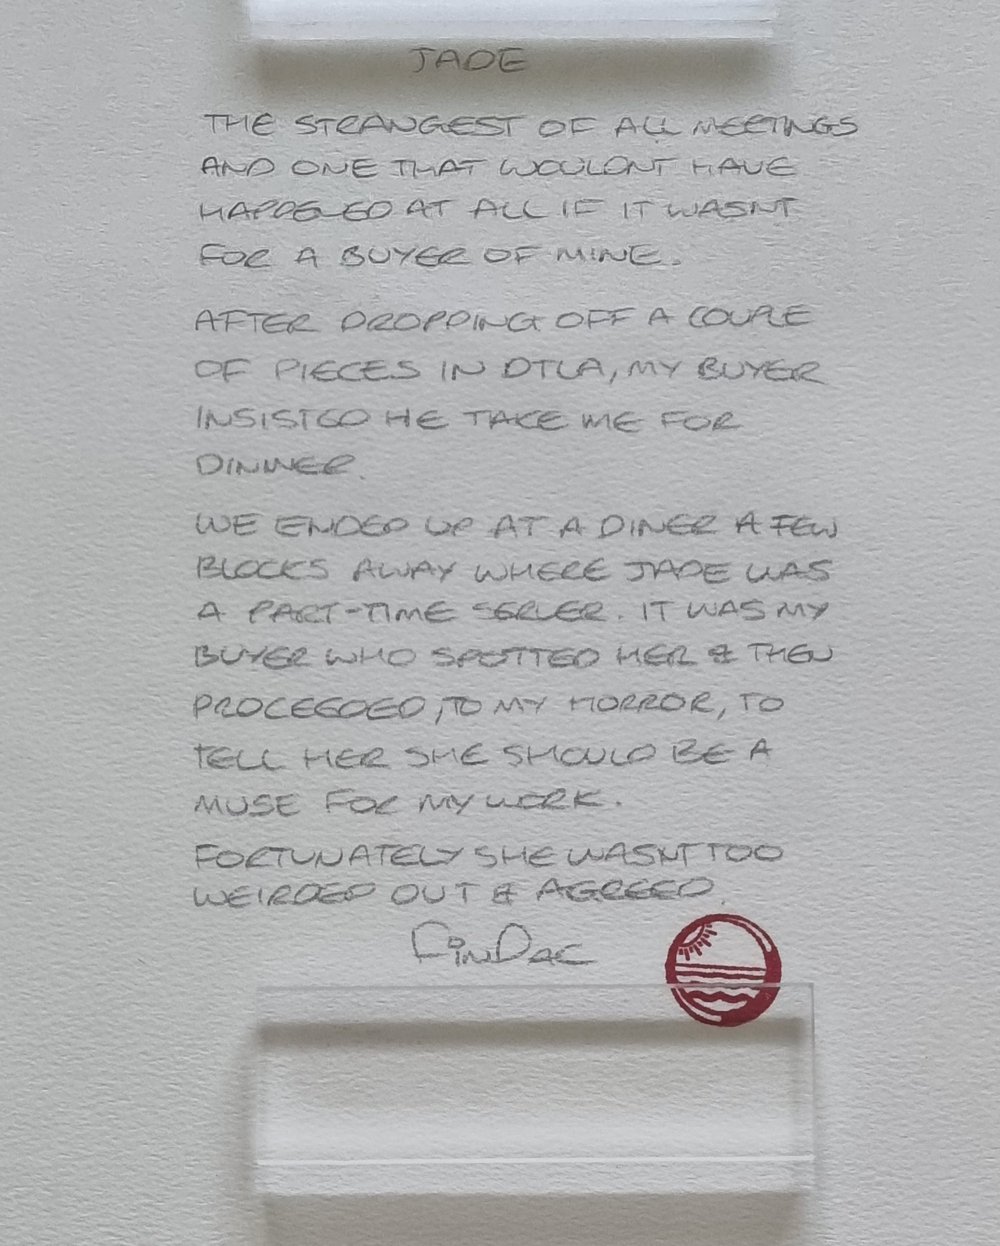 JADE
THE STRANGEST OF ALL MEETINGS
AND ONE THAT WOULDNT HAVE
HAPPENED AT ALL IF IT WASNT
FOR A BUYER OF MINE.
AFTER DROPPING OFF A COUPLE
OF PIECES IN DTLA, MY BUYER
INSISTED HE TAKE ME FOR
DINNER.
WE ENDED UP AT A DINER A FEW
BLOCKS AWAY WHERE JADE WAS
A PART-TIME SERVER. IT WAS MY
BUYER WHO SPOTTED HER & THEN
PROCEEDED, TO MY HORROR, TO
TELL HER SHE SHOULD BE A
MUSE FOR MY WORK.
FORTUNATELY SHE WASNT TOO
WEIRDED OUT & AGREED.
FINDAC